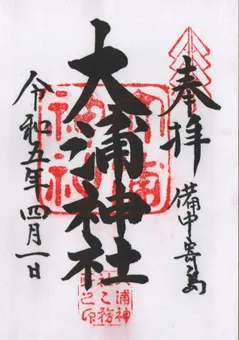 奉拝
備中寄島
大浦神社
令和五年四月一日
大浦神
社之務
所之印